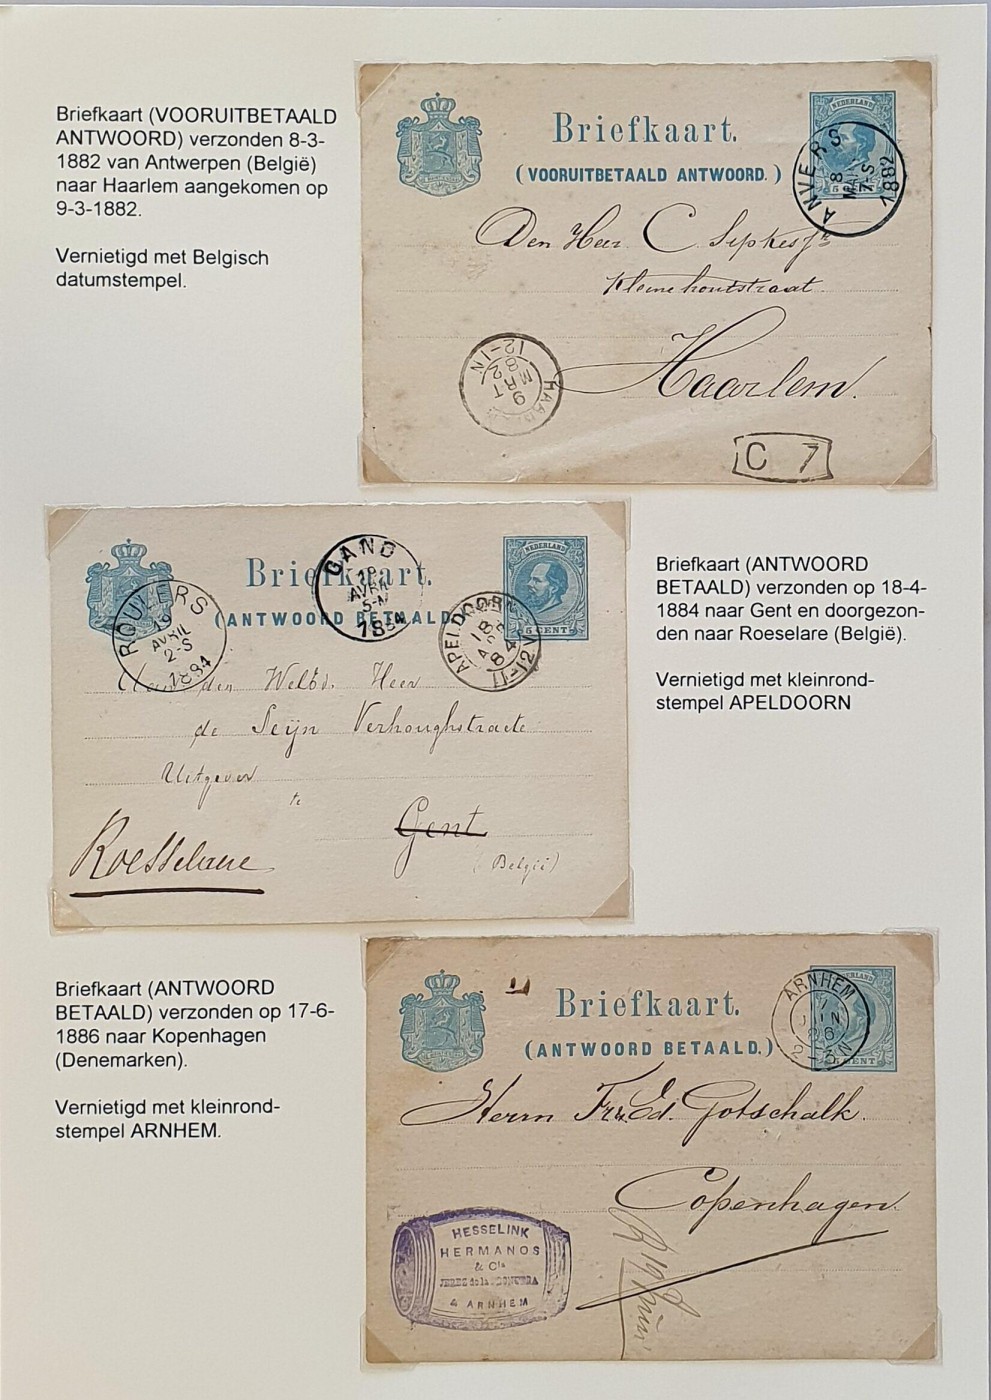 Briefkaart (VOORUITBETAALD
ANTWOORD) verzonden 8-3-
1882 van Antwerpen (België)
naar Haarlem aangekomen op
9-3-1882.
Vernietigd met Belgisch
datumstempel.
Briefkaart.
(VOORUITBETAALD ANTWOORD.)
NEDERLAND
ANVERS
8
7-S
1882
Den Heer C. Sipkes Jr
Kleine houtstraat
Haarlem.
9
MRT
82
12-1N
C 7
Briefkaart.
(ANTWOORD BETAALD
NEDERLAND
5 CENT
ROULERS
19
AVRIL
2-S
1884
GAND
AVRIL
1884
APELDOORN
18
84
11-12V
den Heer
de Seijn Verhoughstraete
Uitgever
te
Gent
(België)
Roesselaere
Briefkaart (ANTWOORD
BETAALD) verzonden op 18-4-
1884 naar Gent en doorgezon-
den naar Roeselare (België).
Vernietigd met kleinrond-
stempel APELDOORN
Briefkaart (ANTWOORD
BETAALD) verzonden op 17-6-
1886 naar Kopenhagen
(Denemarken).
Vernietigd met kleinrond-
stempel ARNHEM.
Briefkaart.
(ANTWOORD BETAALD.)
NEDERLAND
5 CENT
ARNHEM
JUN
86
Herrn Fr. Ed. Gotschalk
Copenhagen
HESSELINK
HERMANOS
& Cia
JEREZ de la FRONTERA
& ARNHEM